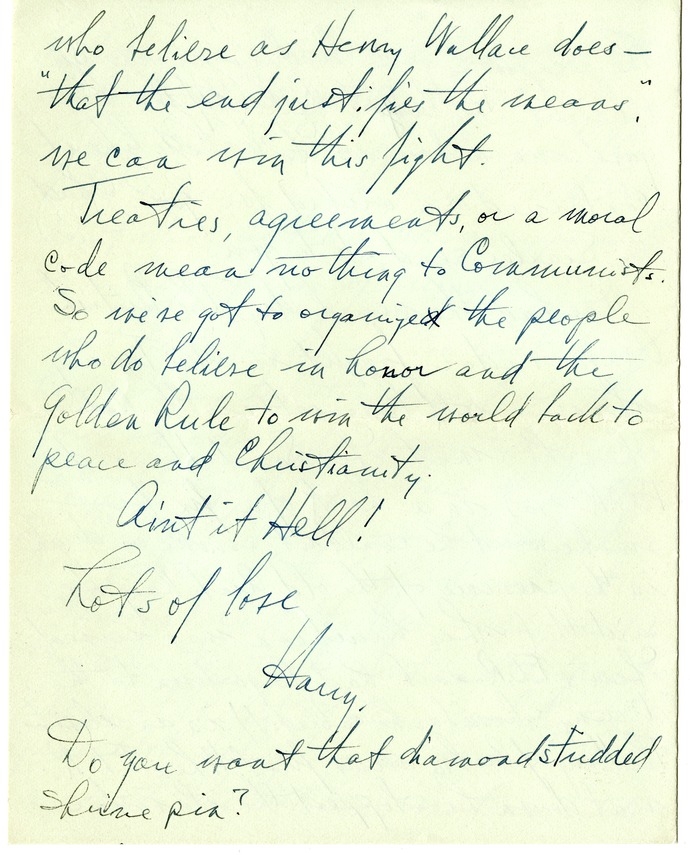 who believe as Henry Wallace does—
"that the end justifies the means,"
we can win this fight.
Treaties, agreements, or a moral
code mean nothing to Communists.
So we've got to organize the people
who do believe in honor and the
Golden Rule to win the world back to
peace and Christianity.
Aint it Hell!
Lots of love
Harry.
Do you want that diamondstudded
Shrine pin?